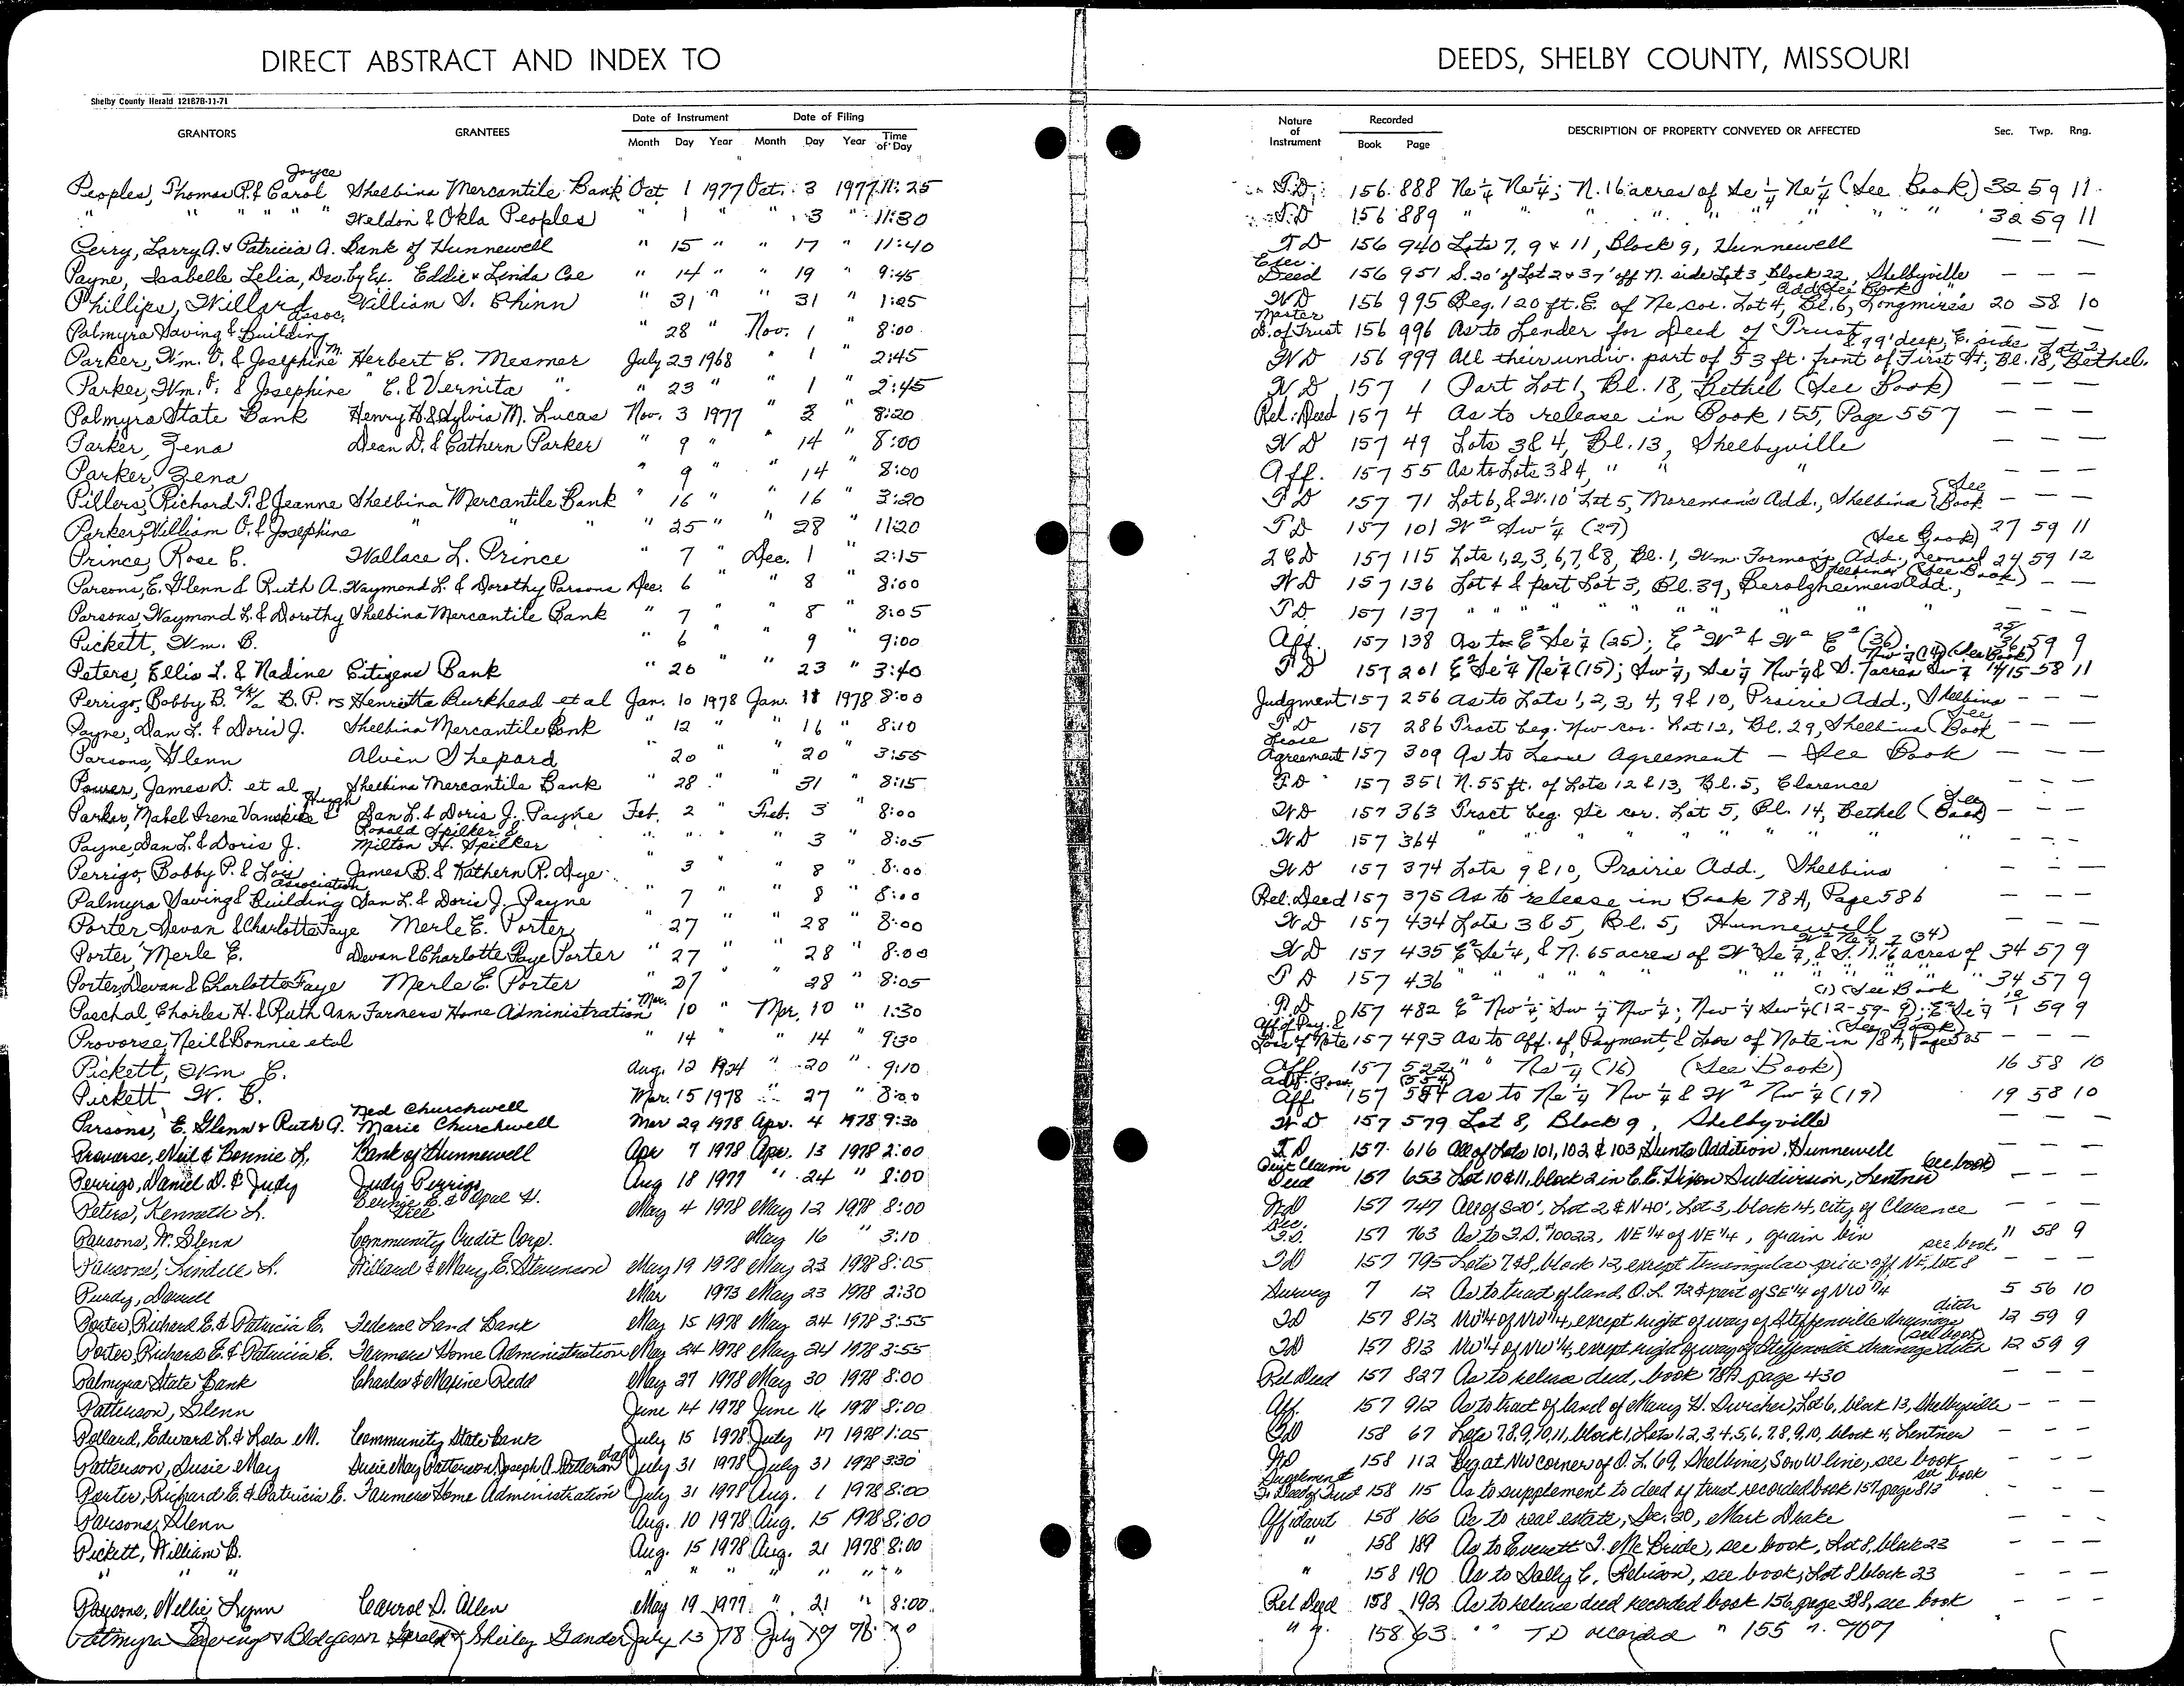 DIRECT ABSTRACT AND INDEX TO
DEEDS, SHELBY COUNTY, MISSOURI
Shelby County Herald 12187B-11-71
GRANTORS GRANTEES Date of Instrument Month Day Year Date of Filing Month Day Year Time of Day Nature of Instrument Recorded Book Page DESCRIPTION OF PROPERTY CONVEYED OR AFFECTED Sec. Twp. Rng.
Peoples, Thomas P. & Carol Joyce Shelbina Mercantile Bank Oct. 1 1977 Oct. 3 1977 11:25 T.D. 156 888 Ne¼ Ne¼; N. 16 acres of Se¼ Ne¼ (See Book) 32 59 11
" " " " " Weldon & Okla Peoples " 1 " " 3 " 11:30 T.D 156 889 " " " " " " " " 32 59 11
Perry, Larry A. & Patricia A. Bank of Hunnewell " 15 " " 17 " 11:40 T D 156 940 Lots 7, 9 & 11, Block 9, Hunnewell — — —
Payne, Isabelle Lelia, Dec. by Ex. Eddie & Linda Coe " 14 " " 19 " 9:45 Exec. Deed 156 951 S. 20' of Lot 2 & 37' off N. side Lot 3, Block 22, Shelbyville — — —
Phillips, Willard William S. Chinn " 31 " " 31 " 1:25 WD 156 995 Beg. 120 ft. E. of Ne. cor. Lot 4, Bl. 6, Longmire's Add (See Book) 20 58 10
Palmyra Saving & Building Assoc. " 28 " Nov. 1 " 8:00 Master D. of Trust 156 996 As to Lender for Deed of Trust — — —
Parker, Wm. O. & Josephine M. Herbert E. Mesmer July 23 1968 " 1 " 2:45 WD 156 999 All their undiv. part of 53 ft. front of First St., & 99' deep, E. side Lot 2, Bl. 18, Bethel.
Parker, Wm. O. & Josephine " E. & Vernita " " 23 " " 1 " 2:45 WD 157 1 Part Lot 1, Bl. 18, Bethel (See Book) — — —
Palmyra State Bank Henry H. & Sylvia M. Lucas Nov. 3 1977 " 3 " 8:20 Rel. Deed 157 4 As to release in Book 155, Page 557 — — —
Parker, Zena Dean D. & Cathern Parker " 9 " " 14 " 8:00 WD 157 49 Lots 3 & 4, Bl. 13, Shelbyville — — —
Parker, Zena " 9 " " 14 " 8:00 Aff. 157 55 As to Lots 3 & 4, " " " — — —
Pillers, Richard T. & Jeanne Shelbina Mercantile Bank " 16 " " 16 " 3:20 T D 157 71 Lot 6, & W. 10' Lot 5, Moreman's Add., Shelbina (See Book — — —
Parker, William O. & Josephine " " " " 25 " " 28 " 11:20 T D 157 101 W² Sw¼ (27) (See Book) 27 59 11
Prince, Rose E. Wallace L. Prince " 7 " Dec. 1 " 2:15 QCD 157 115 Lots 1, 2, 3, 6, 7, & 8, Bl. 1, Wm. Forman's Add., Leonard 24 59 12
Parsons, E. Glenn & Ruth A. Waymond L. & Dorothy Parsons Dec. 6 " " 8 " 8:00 WD 157 136 Lot 4 & part Lot 3, Bl. 39, Berolzheimers Add., Shelbina (See Book) — —
Parsons, Waymond L. & Dorothy Shelbina Mercantile Bank " 7 " " 8 " 8:05 T.D. 157 137 " " " " " " " " — — —
Pickett, Wm. B. " 6 " " 9 " 9:00 Aff. 157 138 As to E² Se¼ (25); E² W² & W² E² (36) 25/36 59 9
Peters, Ellis L. & Nadine Citizens Bank " 20 " " 23 " 3:40 T D 157 201 E² Se¼ Ne¼ (15); Sw¼, Se¼ Nw¼ & S. 7 acres Sw¼ Nw¼ (14) (See Book) 14/15 58 11
Perrigo, Bobby B. a/k/a B. P. vs Henrietta Burkhead et al Jan. 10 1978 Jan. 11 1978 8:00 Judgment 157 256 As to Lots 1, 2, 3, 4, 9 & 10, Prairie Add., Shelbina — — —
Payne, Dan L. & Doris J. Shelbina Mercantile Bank " 12 " " 16 " 8:10 T D 157 286 Tract beg. Nw cor. Lot 12, Bl. 29, Shelbina (See Book — — —
Parsons, Glenn Alvin Shepard " 20 " " 20 " 3:55 Lease Agreement 157 309 As to Lease Agreement — See Book — — —
Power, James D. et al Shelbina Mercantile Bank " 28 " " 31 " 8:15 T D 157 351 N. 55 ft. of Lots 12 & 13, Bl. 5, Clarence — — —
Parker, Mabel Irene Vanskike & Hugh Dan L. & Doris J. Payne Feb. 2 " Feb. 3 " 8:00 WD 157 363 Tract beg. Se cor. Lot 5, Bl. 14, Bethel (See Book) — — —
Payne, Dan L. & Doris J. Ronald Spilker & Milton H. Spilker " " " " 3 " 8:05 WD 157 364 " " " " " " " — — —
Perrigo, Bobby P. & Lois James B. & Kathern R. Dye " 3 " " 8 " 8:00 WD 157 374 Lots 9 & 10, Prairie Add., Shelbina — — —
Palmyra Saving & Building Association Dan L. & Doris J. Payne " 7 " " 8 " 8:00 Rel. Deed 157 375 As to release in Book 78A, Page 586 — — —
Porter Devan & Charlotte Faye Merle E. Porter " 27 " " 28 " 8:00 WD 157 434 Lots 3 & 5, Bl. 5, Hunnewell — — —
Porter, Merle E. Devan & Charlotte Faye Porter " 27 " " 28 " 8:00 WD 157 435 E² Se¼, & N. 65 acres of W² Se¼, & S. 11.16 acres of W² Ne¼ (34) 34 57 9
Porter, Devan & Charlotte Faye Merle E. Porter 27 " 28 " 8:05 T D 157 436 " " " " " " " 34 57 9
Paschal, Charles H. & Ruth Ann Farmers Home Administration Mar. 10 " Mar. 10 " 1:30 T.D 157 482 E² Nw¼; Sw¼ Nw¼; Nw¼ Sw¼ (12-59-9); E² Se¼ (1) (See Book 12/1 59 9
Provorse, Neil & Bonnie et al " 14 " " 14 " 9:30 Aff. of Pay. & Loss of Note 157 493 As to Aff. of Payment, & Loss of Note in 78A, Page 585 (See Book) — — —
Pickett, Wm E. Aug. 12 1924 " 20 " 9:10 Aff. 157 522 " " Ne¼ (16) (See Book) 16 58 10
Pickett W. B. Mar. 15 1978 " 27 " 8:00 Adv. Poss. Aff 157 554 (554) As to Ne¼ Nw¼ & W² Nw¼ (19) 19 58 10
Parsons, E. Glenn & Ruth A. Ned Churchwell Marie Churchwell Mar 29 1978 Apr. 4 1978 9:30 W D 157 579 Lot 8, Block 9, Shelbyville — — —
Provorse, Neil & Bonnie L. Bank of Hunnewell Apr 7 1978 Apr. 13 1978 2:00 T D 157 616 All of Lots 101, 102 & 103 Hunts Addition, Hunnewell — — —
Perrigo, Daniel D. & Judy Judy Perrigo Aug 18 1977 " 24 " 8:00 Quit Claim Deed 157 653 Lot 10 & 11, block 2 in C.E. Dixon Subdivision, Lentner see book — — —
Peters, Kenneth L. Bernie E. & Opal H. Free May 4 1978 May 12 1978 8:00 WD 157 747 All of S20', Lot 2 & N40', Lot 3, block 14, city of Clarence — — —
Parsons, W. Glenn Community Credit Corp. May 16 " 3:10 Sec. T.D. 157 763 As to T.D. #10022, NE¼ of NE¼, grain bin 11 58 9
Parsons, Lindell L. Willard & Mary E. Stevenson May 19 1978 May 23 1978 8:05 TD 157 795 Lots 7 & 8, block 12, except triangular piece off NE, lot 8 see book — — —
Purdy, Darrell Mar 1973 May 23 1978 2:30 Survey 7 12 As to tract of land, O.L. 72 & part of SE¼ of NW¼ 5 56 10
Porter, Richard E. & Patricia E. Federal Land Bank May 15 1978 May 24 1978 3:55 TD 157 812 NW¼ of NW¼, except right of way of Steffenville drainage ditch 12 59 9
Porter, Richard E. & Patricia E. Farmers Home Administration May 24 1978 May 24 1978 3:55 TD 157 813 NW¼ of NW¼, except right of way of Steffenville drainage ditch (see book) 12 59 9
Palmyra State Bank Charles & Maxine Redd May 27 1978 May 30 1978 8:00 Rel Deed 157 827 As to release deed, book 78A page 430 — — —
Patterson, Glenn June 14 1978 June 16 1978 8:00 Aff. 157 912 As to tract of land of Mary H. Surcher, Lot 6, block 13, Shelbyville — — —
Pollard, Edward L. & Lola M. Community State Bank July 15 1978 July 17 1978 1:05 TD 158 67 Lots 7, 8, 9, 10, 11, block 1, Lots 1, 2, 3, 4, 5, 6, 7, 8, 9, 10, block 4, Lentner — — —
Patterson, Susie May Susie May Patterson, Joseph A. Patterson et al July 31 1978 July 31 1978 3:30 WD 158 112 Beg at NW corner of O.L. 69, Shelbina, S on W line, see book — — —
Porter, Richard E. & Patricia E. Farmers Home Administration July 31 1978 Aug. 1 1978 8:00 Supplement To Deed of Trust 158 115 As to supplement to deed of trust recorded book 157 page 813 see book — — —
Parsons, Glenn Aug. 10 1978 Aug. 15 1978 8:00 Affidavit 158 166 As to real estate, Sec. 20, Mark Drake — — —
Pickett, William B. Aug. 15 1978 Aug. 21 1978 8:00 " 158 189 As to Everett T. McBride, see book, Lot 8, block 23 — — —
" " " " " " " " " " " 158 190 As to Sally E. Robison, see book, Lot 8 block 23 — — —
Parsons, Nellie Lynn Carrol D. Allen May 19 1977 " 21 " 8:00 Rel Deed 158 192 As to release deed recorded book 156, page 388, see book — — —
Palmyra Savings & Bldg assn Gerald & Shirley Sander July 13 78 July 19 78 " " 158 63 " " TD recorded " 155 p. 707